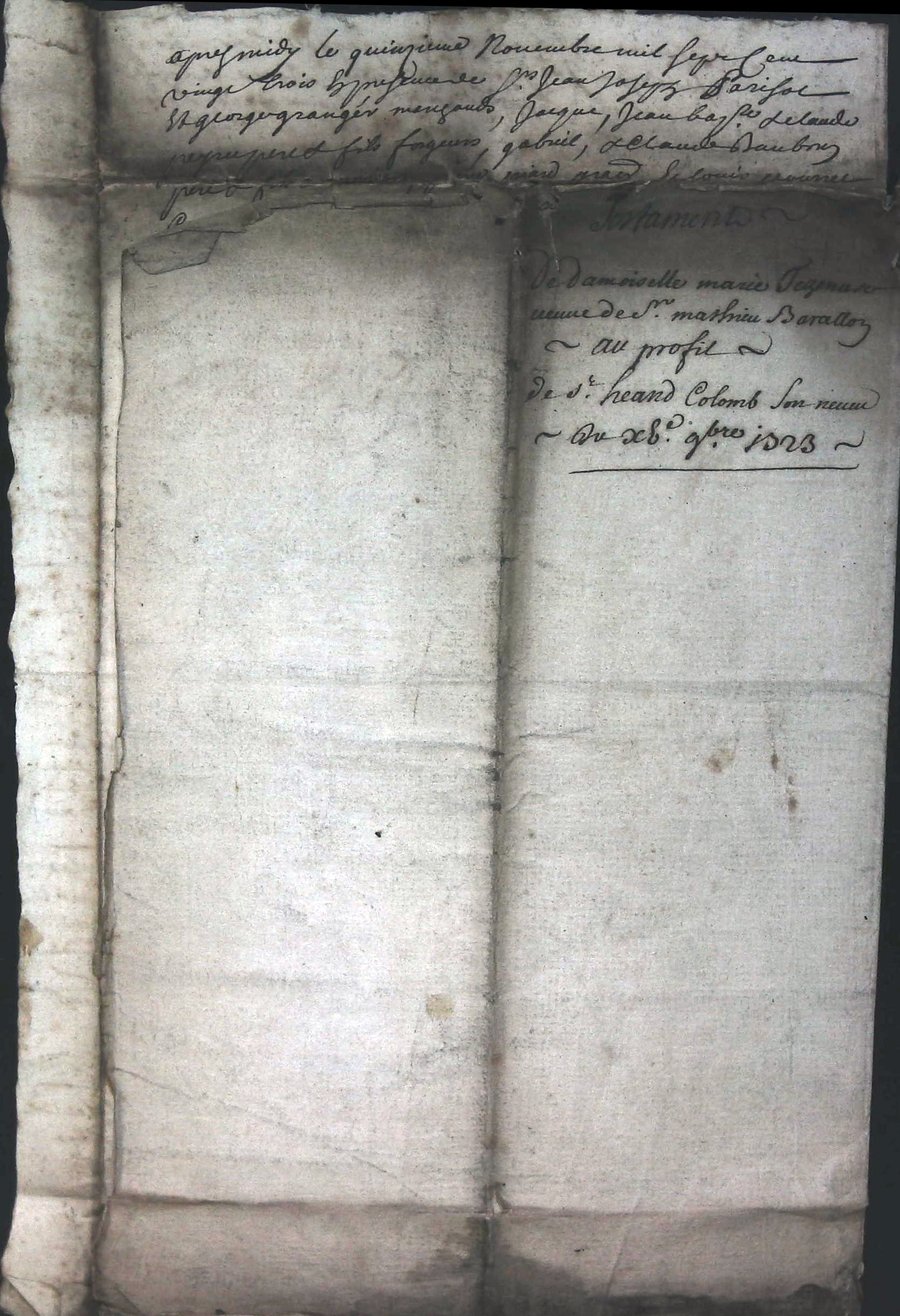 apres midy le quinzieme Novembre mil sept Cent
vingt trois En presence de Srs Jean Joseph Parisot
Et george granger marchands, Jacque, Jean bapte & claude
pere & fils forgeurs, gabriel, & Claude Baubon
pere & Et louis
Testament ~
De damoiselle marie Tezenas
veuve de Sr. mathieu Barallon
~ au profit ~
de Sr. heand Colomb Son neveu
~ Du xve. 9bre 1723 ~